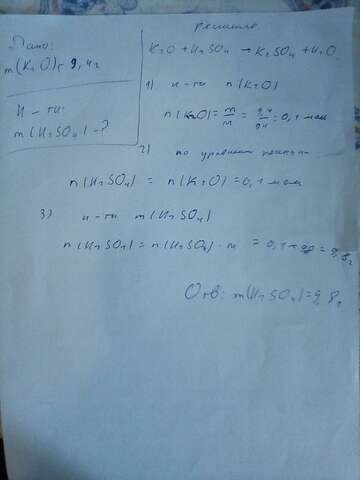 Дано:
m(K2O)=9,4г
Н-ти:
m(H2SO4)-?
решение.
K2O+H2SO4→K2SO4+H2O
1) н-ти n(K2O)
n(K2O)=m/M=9,4/94=0,1 моль
2) по уравнению реакции
n(H2SO4) = n(K2O)=0,1 моль
3) н-ти m(H2SO4)
n(H2SO4)=n(H2SO4)·M =0,1*98=9,8г
Отв: m(H2SO4)=9,8г